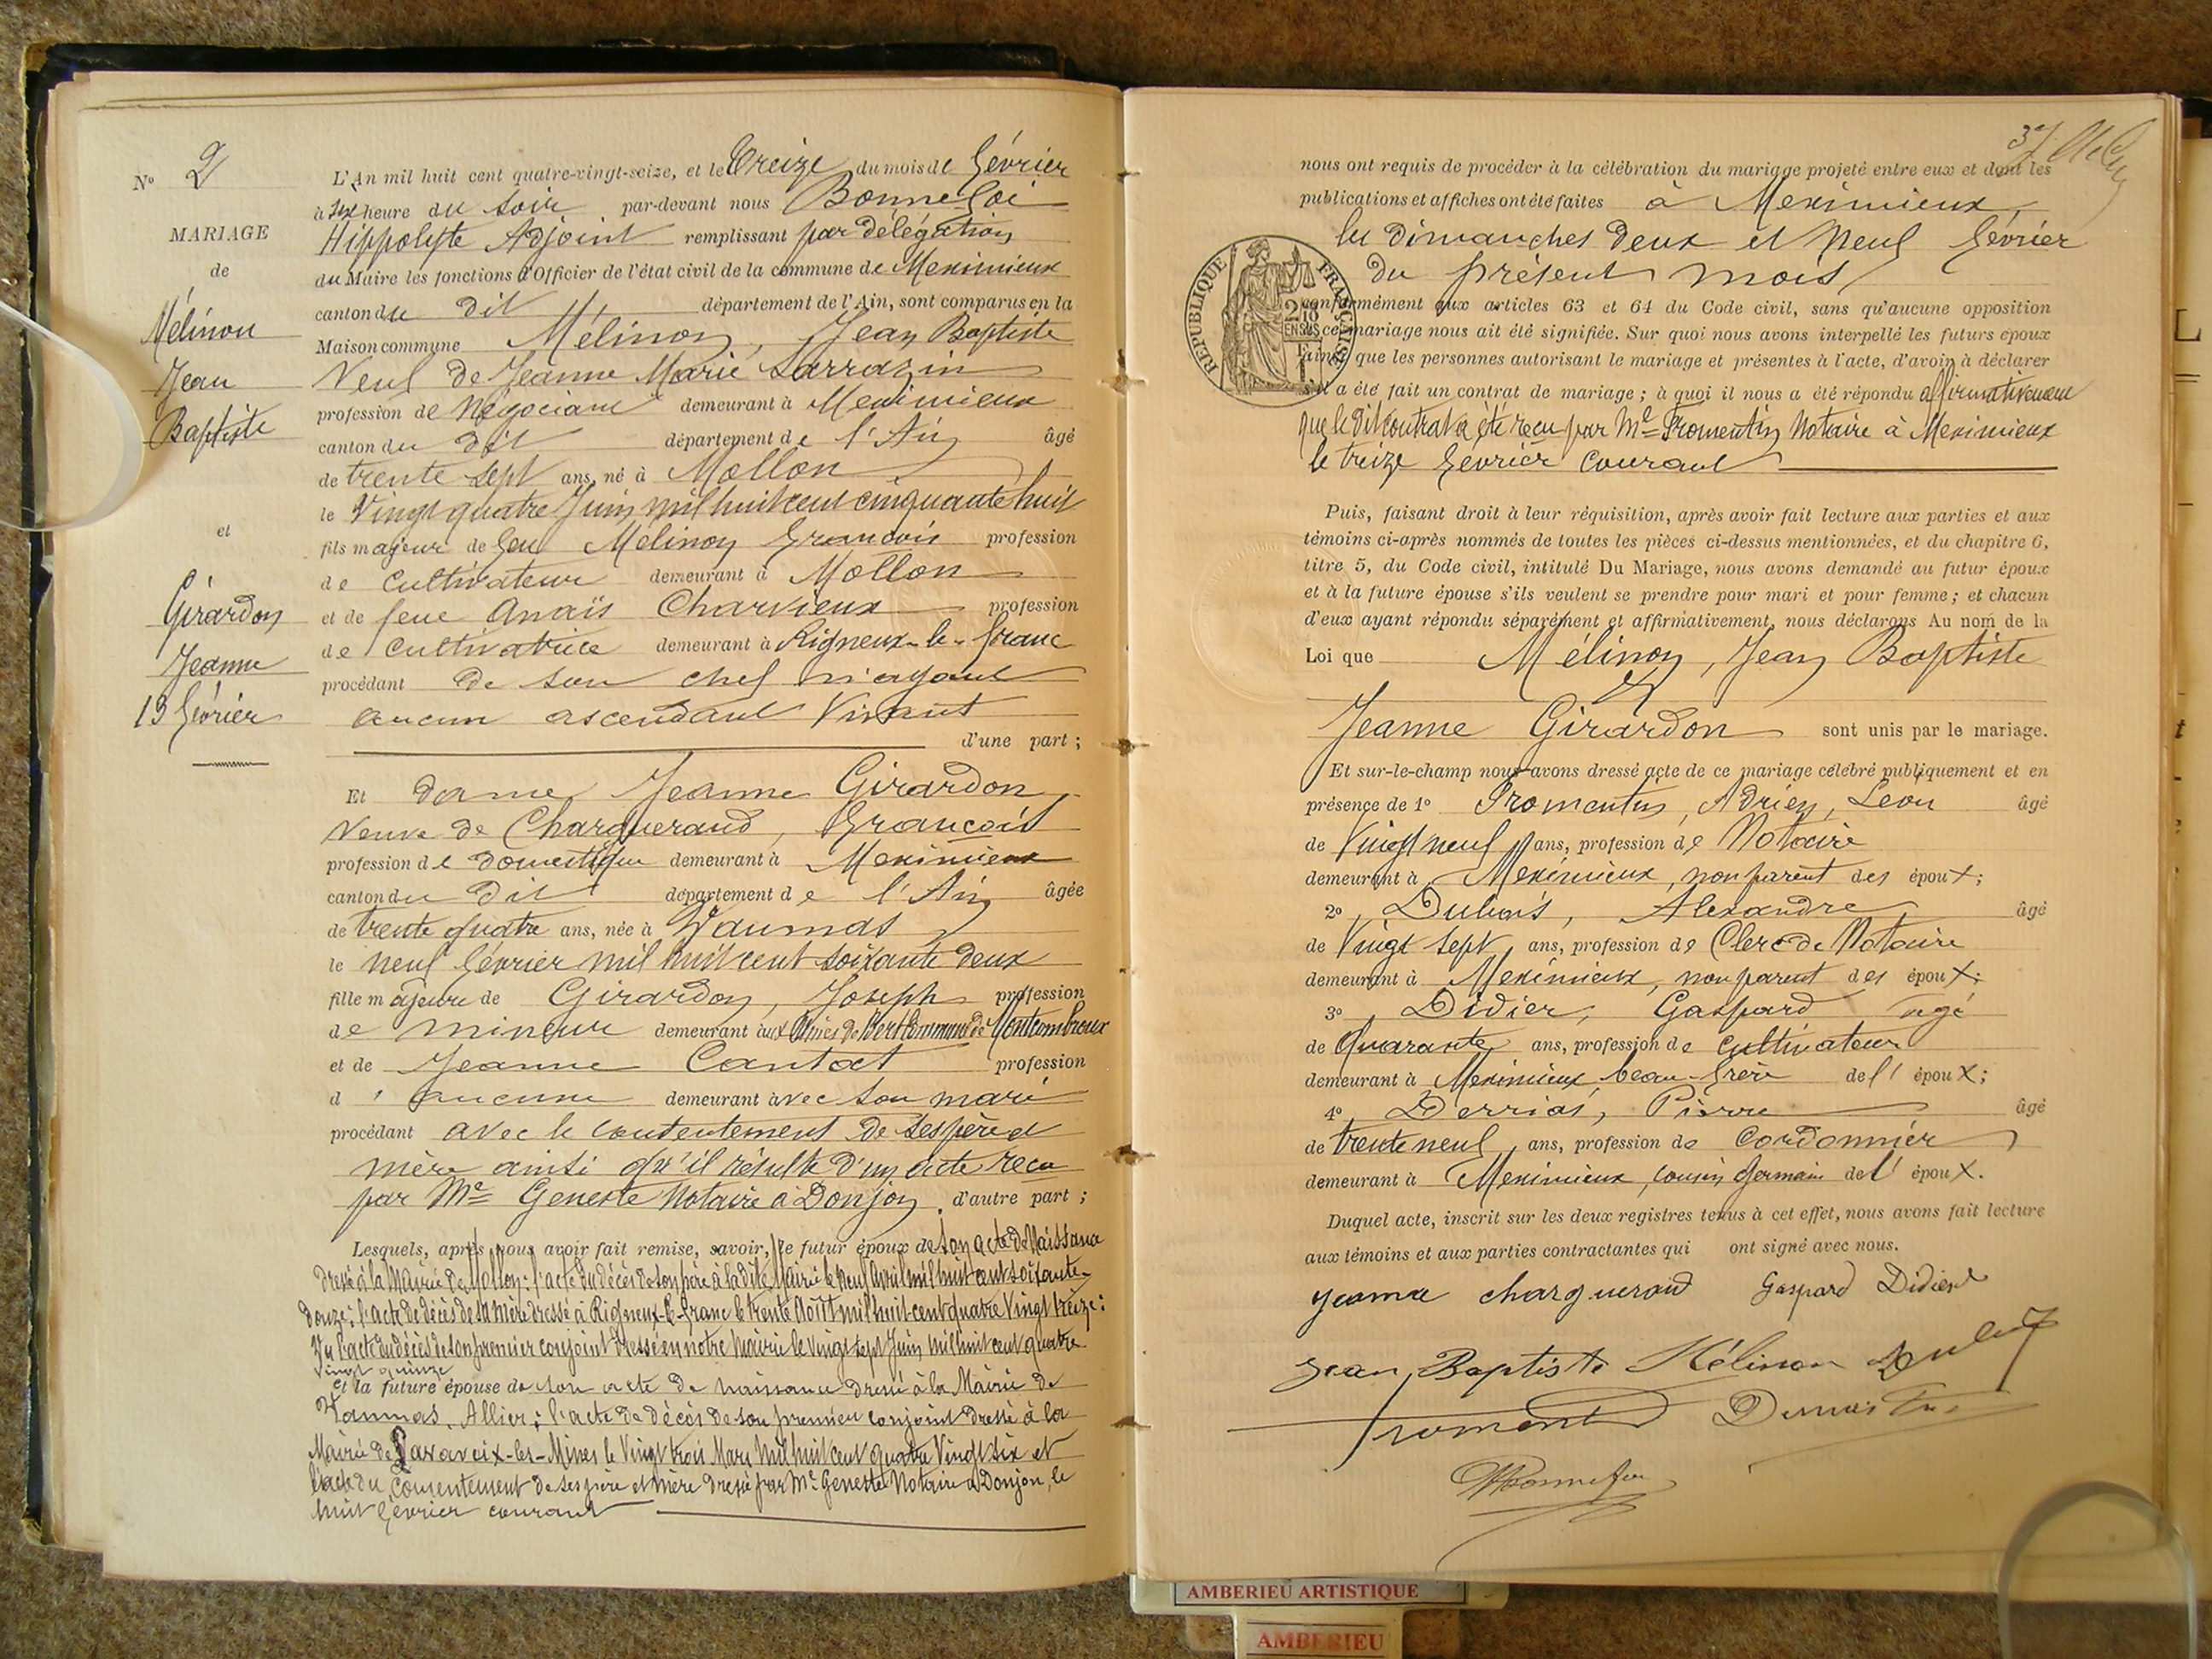 N° 2
MARIAGE
de
Mélinon
Jean
Baptiste
et
Girardon
Jeanne
13 février
L'An mil huit cent quatre-vingt-seize, et le Treize du mois de février
à six heure du soir par-devant nous Bonnefoi
Hippolyte Adjoint remplissant par délégation
du Maire les fonctions d'Officier de l'état civil de la commune de Meximieux
canton du dit département de l'Ain, sont comparus en la
Maison commune Mélinon, Jean Baptiste
Veuf de Jeanne Marie Sarrazin
profession de Négociant demeurant à Meximieux
canton du dit département de l'Ain âgé
de trente sept ans, né à Mollon
le Vingt quatre Juin mil huit cent cinquante huit
fils majeur de feu Mélinon François profession
de cultivateur demeurant à Mollon
et de feue Anaïs Charvieux profession
de cultivatrice demeurant à Rigneux-le-franc
procédant de son chef n'ayant
aucun ascendant vivant
d'une part ;
Et dame Jeanne Girardon
Veuve de Charguerand, François
profession de domestique demeurant à Meximieux
canton du dit département de l'Ain âgée
de trente quatre ans, née à Vaumas
le neuf février mil huit cent soixante deux
fille majeure de Girardon, Joseph profession
de mineur demeurant aux Mines de Bert Commune de Montcombroux
et de Jeanne Cantat profession
d'aucune demeurant avec son mari
procédant avec le contentement de ses père et
mère ainsi qu'il résulte d'un acte reçu
par Me Geneste Notaire à Donjon d'autre part ;
Lesquels, après nous avoir fait remise, savoir, le futur époux de son acte de Naissance
dressé à la Mairie de Mollon : l'acte du décès de son père à la dite Mairie le neuf avril mil huit cent soixante-
douze : l'acte de décès de sa mère dressé à Rigneux-le-franc le trente Août mil huit cent quatre Vingt treize :
Vu l'acte du décès de son premier conjoint dressé en notre Mairie le vingt sept Juin mil huit cent quatre
vingt quinze
et la future épouse de son acte de naissance dressé à la Mairie de
Vaumas, Allier : l'acte de décès de son premier conjoint dressé à la
Mairie de Lavaveix-les-Mines le Vingt trois Mars mil huit cent quatre Vingt six et
l'acte du consentement de ses père et mère dressé par Me Geneste Notaire à Donjon, le
huit février courant
37
nous ont requis de procéder à la célébration du mariage projeté entre eux et dont les
publications et affiches ont été faites à Meximieux,
les dimanches deux et neuf février
du présent mois
RÉPUBLIQUE FRANÇAISE
conformément aux articles 63 et 64 du Code civil, sans qu'aucune opposition
à ce mariage nous ait été signifiée. Sur quoi nous avons interpellé les futurs époux
ainsi que les personnes autorisant le mariage et présentes à l'acte, d'avoir à déclarer
s'il a été fait un contrat de mariage ; à quoi il nous a été répondu affirmativement
que le dit contrat a été reçu par Me Fromentin Notaire à Meximieux
le treize février courant
Puis, faisant droit à leur réquisition, après avoir fait lecture aux parties et aux
témoins ci-après nommés de toutes les pièces ci-dessus mentionnées, et du chapitre 6,
titre 5, du Code civil, intitulé Du Mariage, nous avons demandé au futur époux
et à la future épouse s'ils veulent se prendre pour mari et pour femme ; et chacun
d'eux ayant répondu séparément et affirmativement, nous déclarons Au nom de la
Loi que Mélinon, Jean Baptiste
Et
Jeanne Girardon sont unis par le mariage.
Et sur-le-champ nous avons dressé acte de ce mariage célébré publiquement et en
présence de 1° Fromentin, Adrien, Léon âgé
de Vingt neuf ans, profession de Notaire
demeurant à Meximieux, non parent des époux ;
2° Dubois, Alexandre âgé
de Vingt sept ans, profession de Clerc de Notaire
demeurant à Meximieux, non parent des époux ;
3° Didier, Gaspard âgé
de Quarante ans, profession de cultivateur
demeurant à Meximieux, beau-frère de l'époux ;
4° Derrias, Pierre âgé
de trente neuf ans, profession de Cordonnier
demeurant à Meximieux, cousin germain de l'époux.
Duquel acte, inscrit sur les deux registres tenus à cet effet, nous avons fait lecture
aux témoins et aux parties contractantes qui ont signé avec nous.
Jeanne charguerand Gaspard Didier
Jean Baptiste Mélinon
AMBERIEU ARTISTIQUE
AMBERIEU